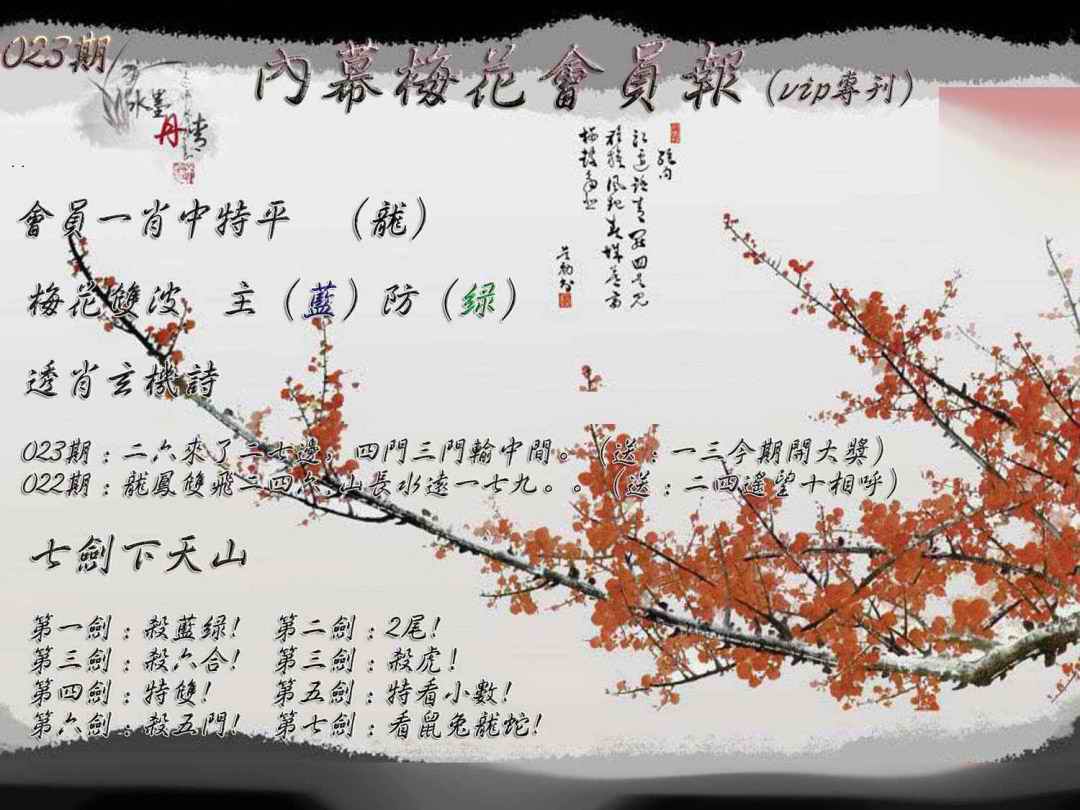 023期
內幕梅花會員報(vip專刊)
水墨丹青
會員一肖中特平 (龍)
梅花雙波 主(藍)防(绿)
透肖玄機詩
023期:二六來了二七邊,四門三門輸中間。(送:一三今期開大獎)
022期:龍鳳雙飛二四六,山長水遠一七九。。(送:二四遙望十相呼)
七劍下天山
第一劍:殺藍绿! 第二劍:2尾!
第三劍:殺六合! 第三劍:殺虎!
第四劍:特雙! 第五劍:特看小數!
第六劍:殺五門! 第七劍:看鼠兔龍蛇!